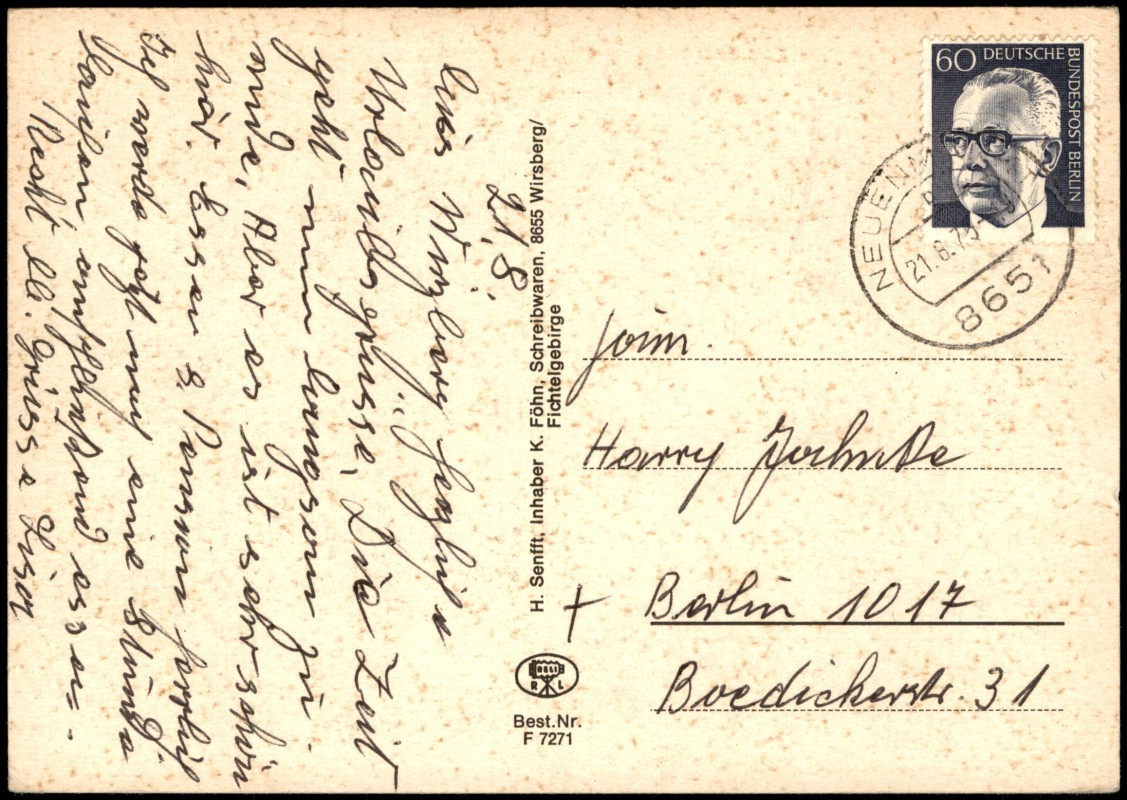 21.8.
Aus Wirsberg herzliche
Urlaubsgrüsse. Die Zeit
geht nun langsam zu-
ende, Aber es ist sehr schön
hier. Essen & Pension herrlich
Ich werde jetzt nur eine Stunde
laufen, anschließend essen.
Recht lb. Grüsse
H. Senfft, Inhaber K. Föhn, Schreibwaren, 8655 Wirsberg/
Fichtelgebirge
RELI
R L
Best.Nr.
F 7271
60 DEUTSCHE
BUNDESPOST BERLIN
NEUENM
21.8.7
8651
Harry Jahnke
Berlin 1017
Boedickerstr. 31